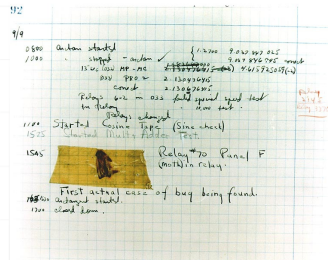 92
9/9
0800 Antan started
1000 " stopped - antan ✓ 9.037 846 995 correct
13"uc (032) MP-MC
(033) PRO 2 2.130476415
correct 2.130676415
Relays 6-2 in 033 failed special speed test
in Relay
Relays changed
1100 Started Cosine Tape (Sine check)
1525 Started Multi Adder Test.
1545 Relay #70 Panel F
(moth) in relay.
First actual case of bug being found.
antangent started.
1700 closed down.